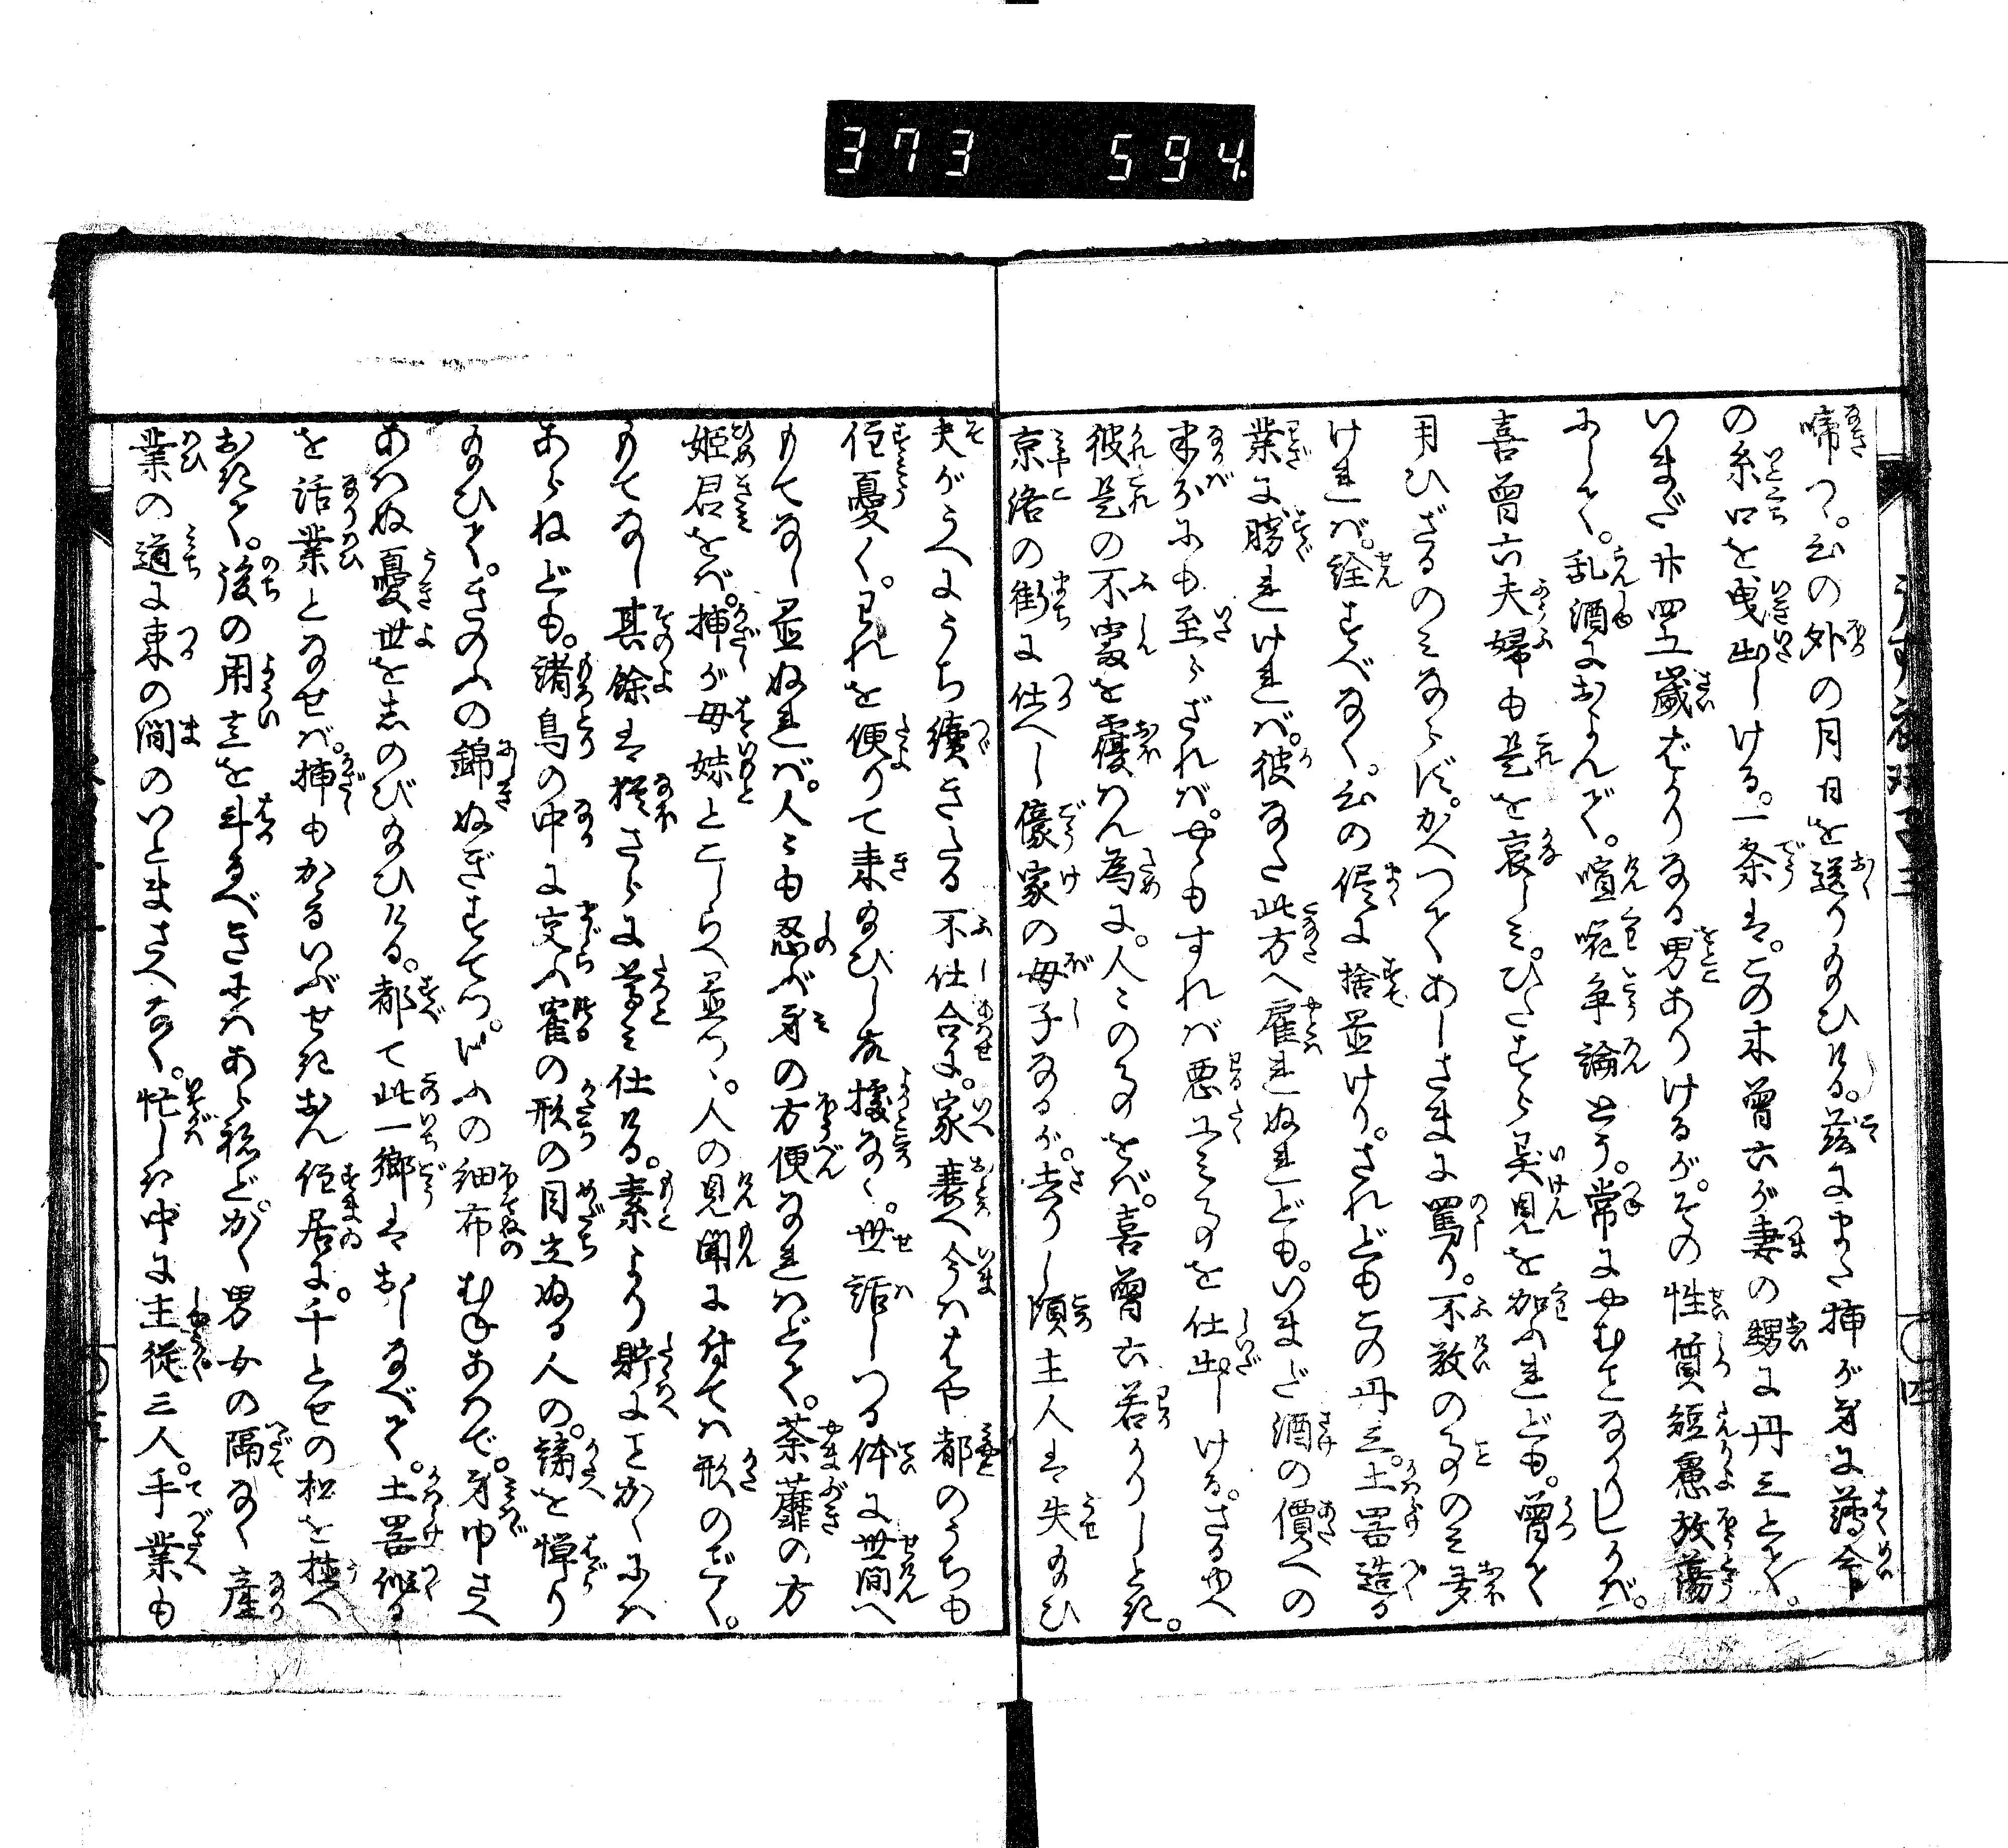 373 594
啼つゝ。思の外の月日を送り給ひける。茲にまた挿が身に薄命
の糸口を曳出しける。一条は。この木曽六が妻の甥に丹三とて。
いまだ廿四五歳ばかりなる男ありけるが。その性質短慮放蕩
にして。乱酒におよんで。喧嘩争論止う。常にやむことなかりしかば。
喜曽六夫婦も是を哀しみ。ひたすら異見を加ふれども。曽て
用ひざるのみならず。かへつてあしさまに罵り。不敬の事のみ多
ければ。詮すべなく。思の侭に捨置けり。されどもこの丹三。土器造る
業に勝れければ。彼なた此方へ雇れぬれども。いまだ酒の價への
半分にも至らざれば。やゝもすれば悪工みの事を仕出しける。さるゆへ
彼是の不審を覆はん為に。人々の事をば。喜曽六若かりしとき。
京洛の街に仕へし豪家の母子なるが。去りし頃主人は失給ひ
夫がうへにうち續きたる不仕合に。家衰へ今ははや都のうちも
住憂く。われを便りて来給ひし故據なく。世話しつる体に世間へ
もてなし置ぬれば。人々も忍ぶ身の方便なればとて。荼蘼の方
姫君をば。挿が母妹とこしらへ置つゝ。人の見聞に付ては形のごとく。
もてなし其餘は猶さらに尊み仕ける。素より貯にとかくには
あらねども。諸鳥の中に交ふ寉の形の目立ぬる人の。諱を憚り
給ひて。きのふの錦ぬぎすてつ。けふの細布むねあはで。身巾さへ
あはぬ憂世を志のび給ひける。都て此一郷はおしなべて。土器造る
を活業となせば。挿もかゝるいぶせきおん住居に。千とせの松を植へ
おきて。後の用意を斗るべきにはあらねど。かく男女の隔なく産
業の道に束の間のいとまさへなく。忙しき中に主従三人。手業も